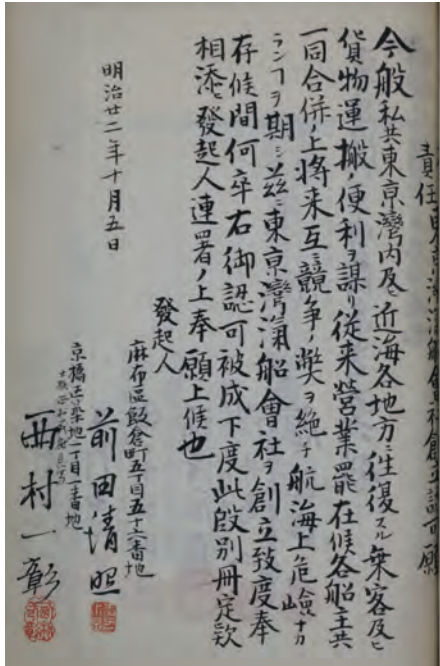 責任東京湾汽船會社創立認可願
今般私共東京灣内及ヒ近海各地方ニ往復スル乗客及ヒ
貨物運搬ノ便利ヲ謀リ従来營業罷在候各船主共
一同合併ノ上将来互ニ競争ノ弊ヲ絶チ航海上危險ナカ
ランヿヲ期シ茲ニ東京灣滊船會社ヲ創立致度奉
存候間何卒右御認可被成下度此段別冊定款
相添ヘ發起人連署ノ上奉願上候也
明治廿二年十月五日
發起人
麻布區飯倉町五丁目五十六番地
前田清照
京橋區築地一丁目一番地
西村一彰